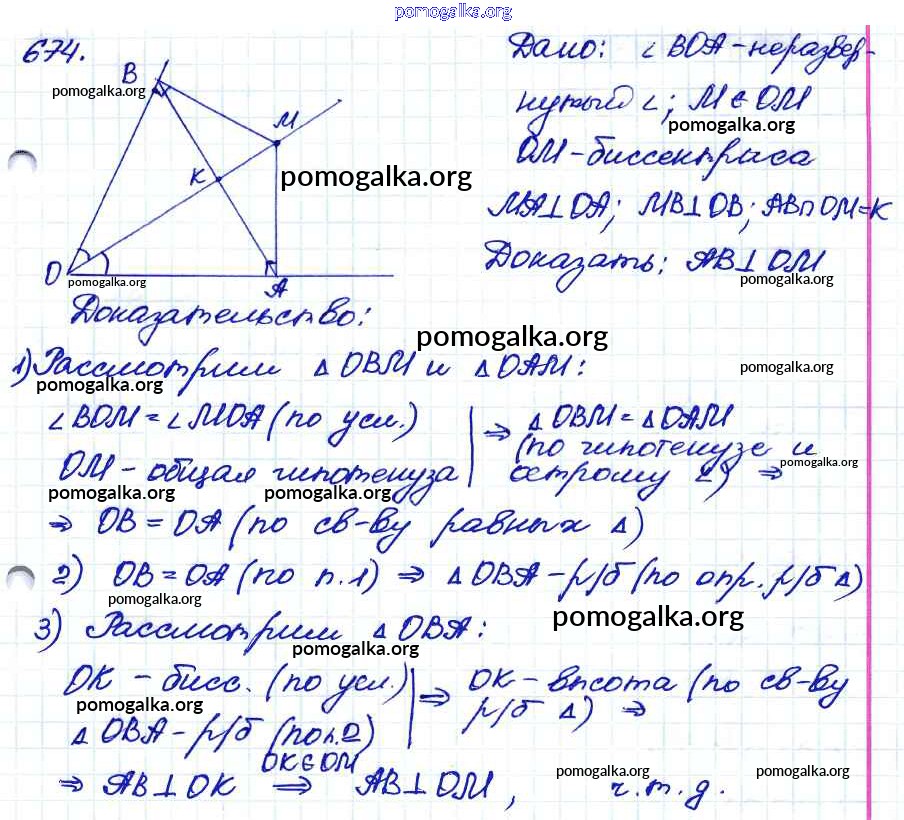 pomogalka.org
674.
Дано: ∠ BOA - неразвер-
нутый ∠; M ∈ OM
OM - биссектриса
MA⊥OA; MB⊥OB; AB∩OM=K
Доказать: AB⊥OM
B
pomogalka.org
M
pomogalka.org
K
pomogalka.org
O
A
pomogalka.org
pomogalka.org
Доказательство:
pomogalka.org
1) Рассмотрим △ OBM и △ OAM:
pomogalka.org
pomogalka.org
∠BOM = ∠MOA (по усл.) ⇒ △ OBM = △ OAM
OM - общая гипотенуза (по гипотенузе и
острому ∠) ⇒
pomogalka.org
pomogalka.org
pomogalka.org
⇒ OB = OA (по св-ву равных △)
2) OB = OA (по п.1) ⇒ △ OBA - р/б (по опр. р/б △)
pomogalka.org
pomogalka.org
3) Рассмотрим △ OBA:
pomogalka.org
OK - бисс. (по усл.) ⇒ OK - высота (по св-ву
р/б △) ⇒
pomogalka.org
△ OBA - р/б (по п.2)
OK ∈ OM
⇒ AB ⊥ OK ⇒ AB ⊥ OM, ч.т.д.
pomogalka.org
pomogalka.org